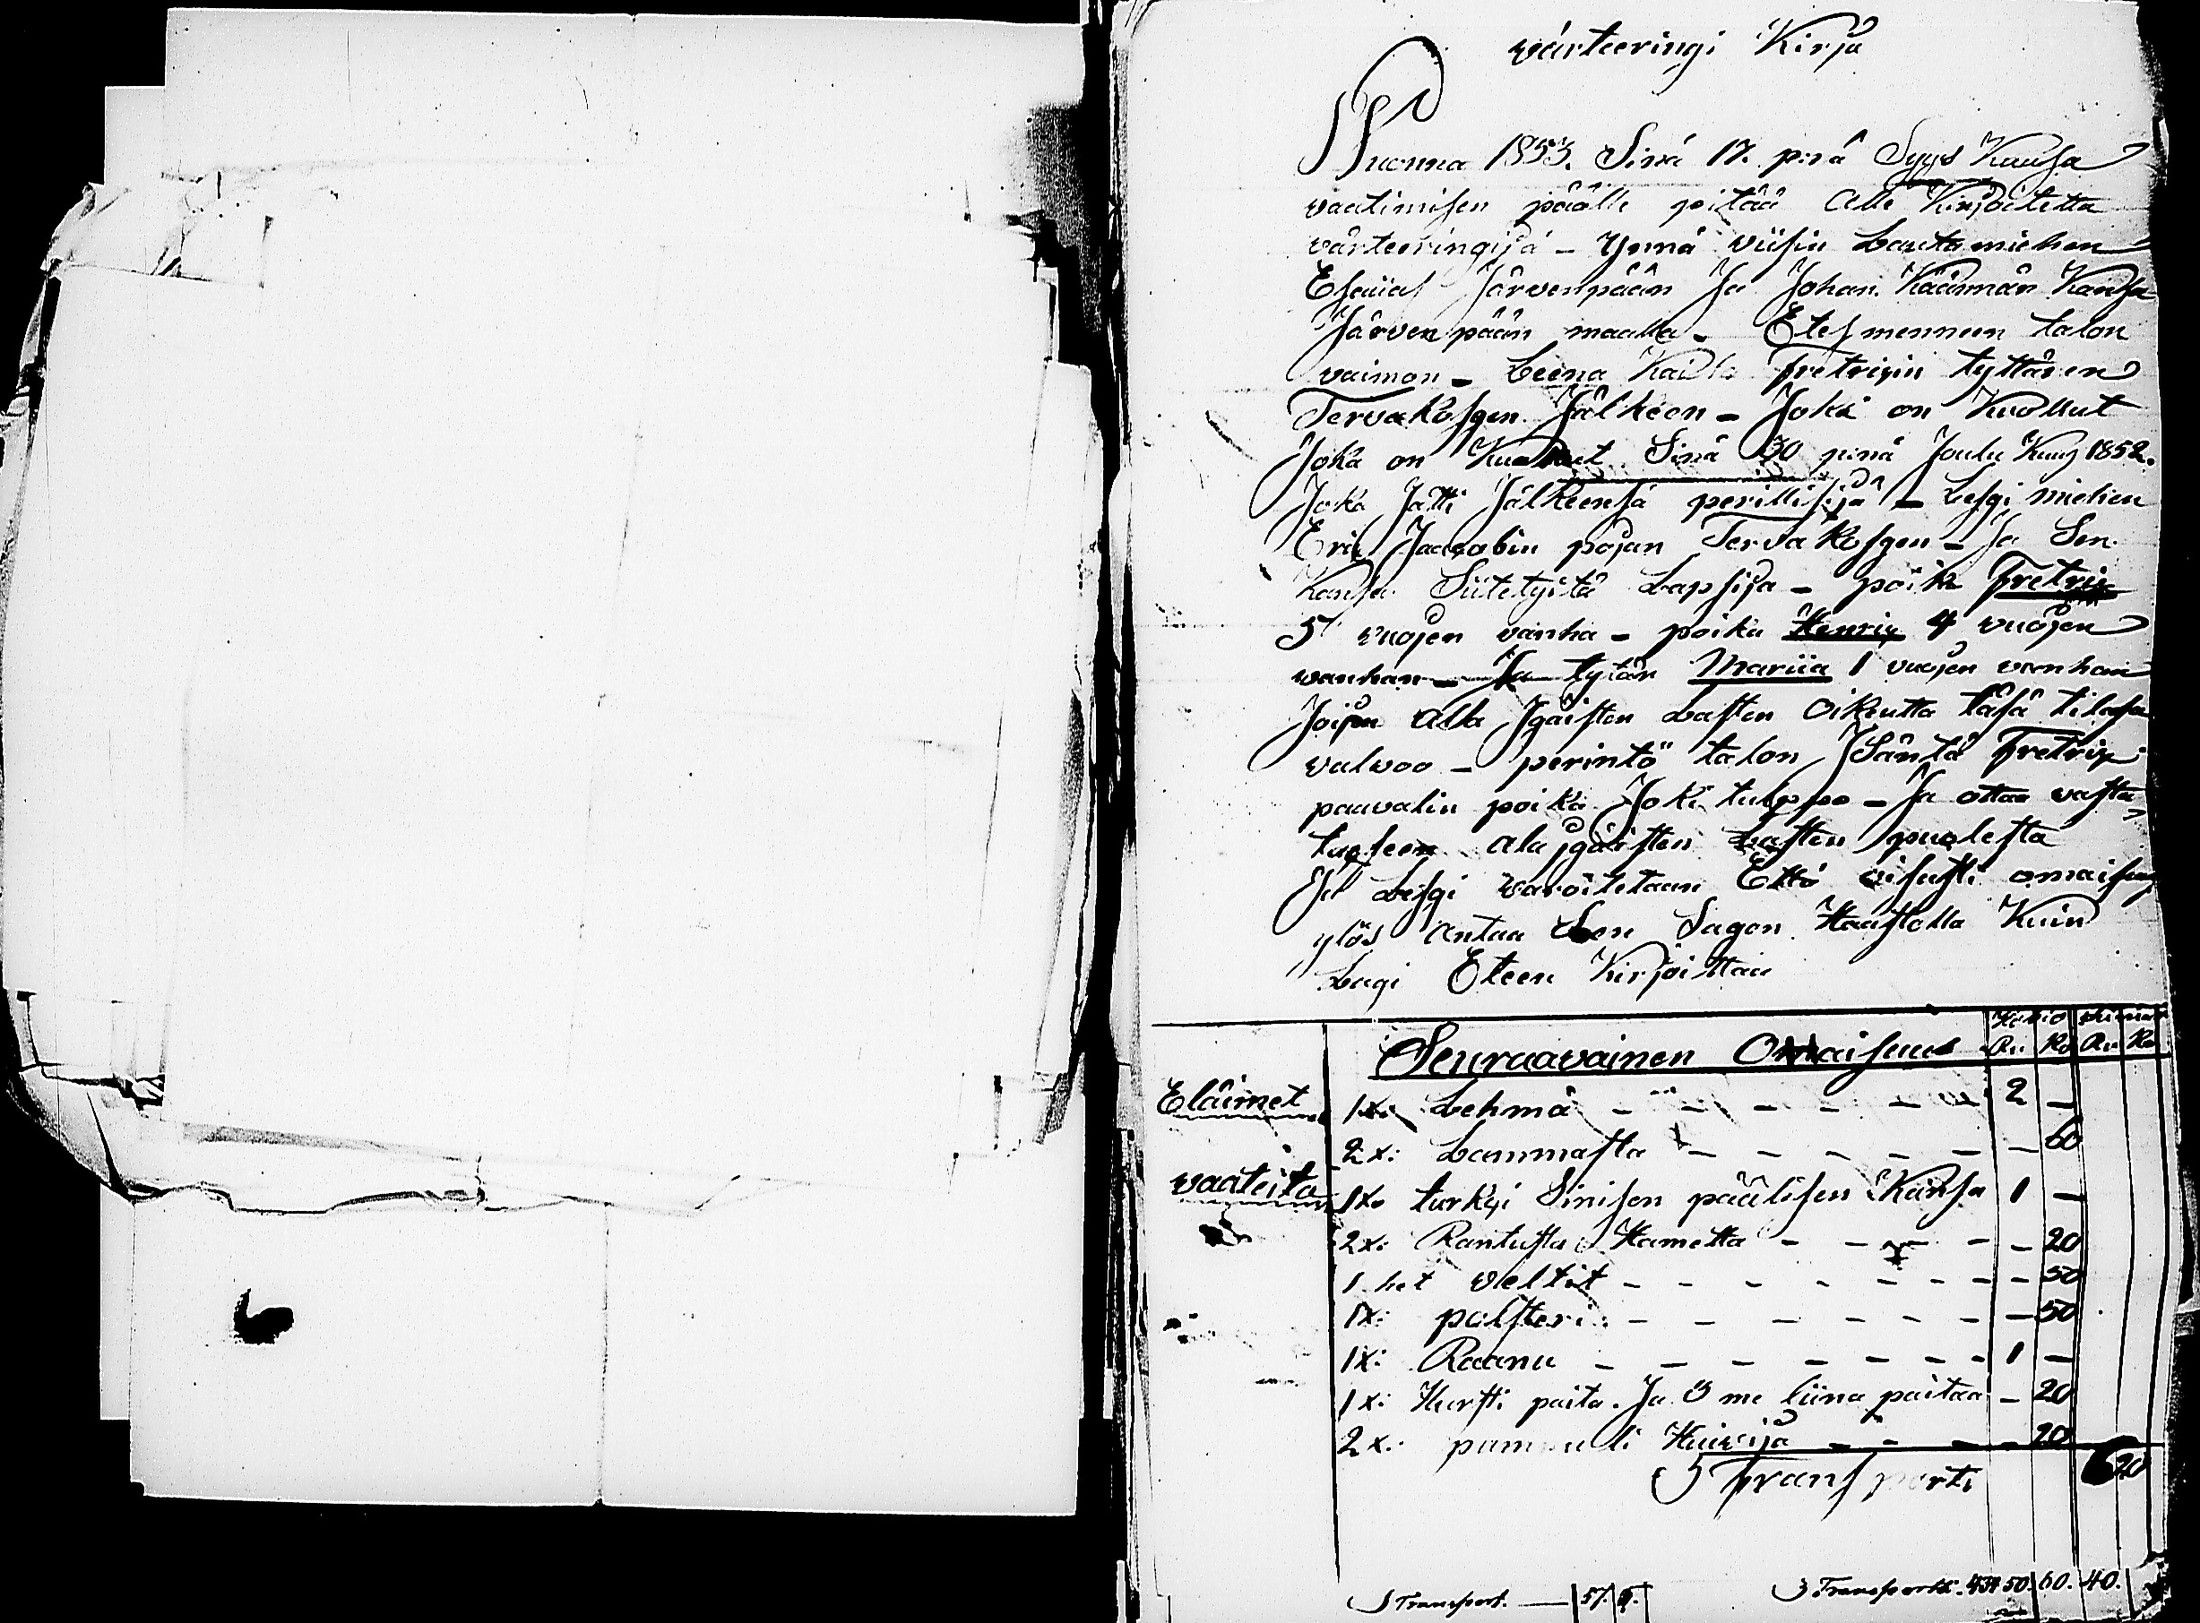 wärteeringi Kirja
Wuonna 1853. Sinä 17. p:nä Syys Kuusa
vaatimisen päälle pitää Alle Kirjoitetta
värteeringijä - Ynnä viisin Lautamiehen
Esaiias Järvenpään Ja Johan. Käärmän Kansa
Järvenpään maalla - Etesmenneen talon
vaimon - Leena Kaisa Fretriyin tyttären
Tervakosgen Jälkeen - Joka on Kuollut
Joka on Kuollut Sinä 30 p:nä Joulu Kuus 1852.
Joka Jätti Jälkeensä perillisijä - Lesgi miehen
Eric Jaacobin pojan Tervakosgen - Ja Sen
Kansa Siitetyitä Lapsija - poika Fretrix
5 vuojen vanha - poika Henrix 4 vuojen
wanhan - Ja tytär Mariia 1 vuojen vanhan
Joisen Alla Jgäisten Lasten Oikeutta täsä tilasa
valvoo - perintö talon Jsäntä Fretrix
paavalin poika Joki tulppo - Ja ottaa vasta
tuxseen ala jgäisten Lasten puolesta
Ja Lesgi varoitetaan Että visusti omaisuus
ylös Antaa Sen Sagon Haastolla Kuin
Lagi Eteen Kirjoittaa
Seuraavainen Omaisuus Ru Ko Ru Ko
Eläimet 1x: Lehmä - - - - - 2 -
2x: Lammasta - - - - - - 60
vaateita 1x: turkyi Sinisen päälisen Kansa 1 -
2x: Rantusta Hametta - - - - - 20
1 het veltit - - - - - - - 50
1x: polsteri - - - - - - - 50
1x: Raanu - - - - - - - 1 -
1x: Hursti paita. Ja 3 me liina paitaa - 20
2x: Huivija - - - - 20
Transporti 6 20
Transport. — 57. 6.
3 Transportti. 434 50. 60. 40.